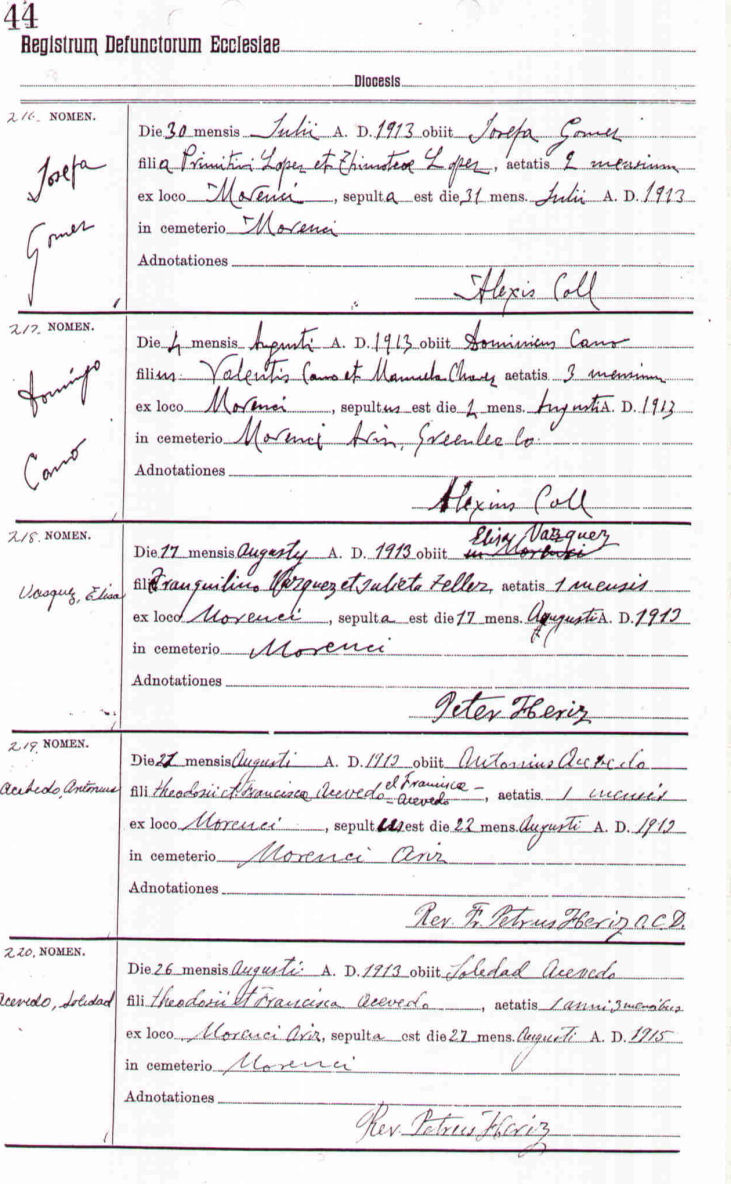 44
Registrum Defunctorum Ecclesiae
Diocesis
216. NOMEN.
Josefa
Gomez
Die 30 mensis Julii A. D. 1913 obiit Josefa Gomez
filia Primitivi Lopez et Lopez, aetatis 2 mensium
ex loco Morenci, sepulta est die 31 mens. Julii A. D. 1913
in cemeterio Morenci
Adnotationes
Alexis Coll
217. NOMEN.
Domingo
Cano
Die 4 mensis Augusti A. D. 1913 obiit Dominicus Cano
filius Valentis Cano et Manuela Chavez aetatis 3 mensium
ex loco Morenci, sepultus est die 4 mens. Augusti A. D. 1913
in cemeterio Morenci Ariz, Greenlee Co.
Adnotationes
Alexius Coll
218. NOMEN.
Vasquez, Elisa
Elisa Vazquez
Die 17 mensis Augusty A. D. 1913 obiit in Morenci
fili Tranquilino Vazquez et Julieta Feller, aetatis 1 mensis
ex loco Morenci, sepulta est die 17 mens. Augusti A. D. 1913
in cemeterio Morenci
Adnotationes
Peter Heriz
219. NOMEN.
Acebedo, Antonius
Die 21 mensis Augusti A. D. 1913 obiit Antonius Acevedo
et Francisca -
fili Theodosii et Francisca Acevedo - Acevedo, aetatis 1 mensis
ex loco Morenci, sepultus est die 22 mens. Augusti A. D. 1913
in cemeterio Morenci Ariz
Adnotationes
Rev. Fr. Petrus Heriz O.C.D.
220. NOMEN.
Acevedo, Soledad
Die 26 mensis Augusti A. D. 1913 obiit Soledad Acevedo
fili Theodosii et Francisca Acevedo, aetatis 1 anni 3 mensibus
ex loco Morenci Ariz, sepulta est die 27 mens. Augusti A. D. 1915
in cemeterio Morenci
Adnotationes
Rev. Petrus Heriz